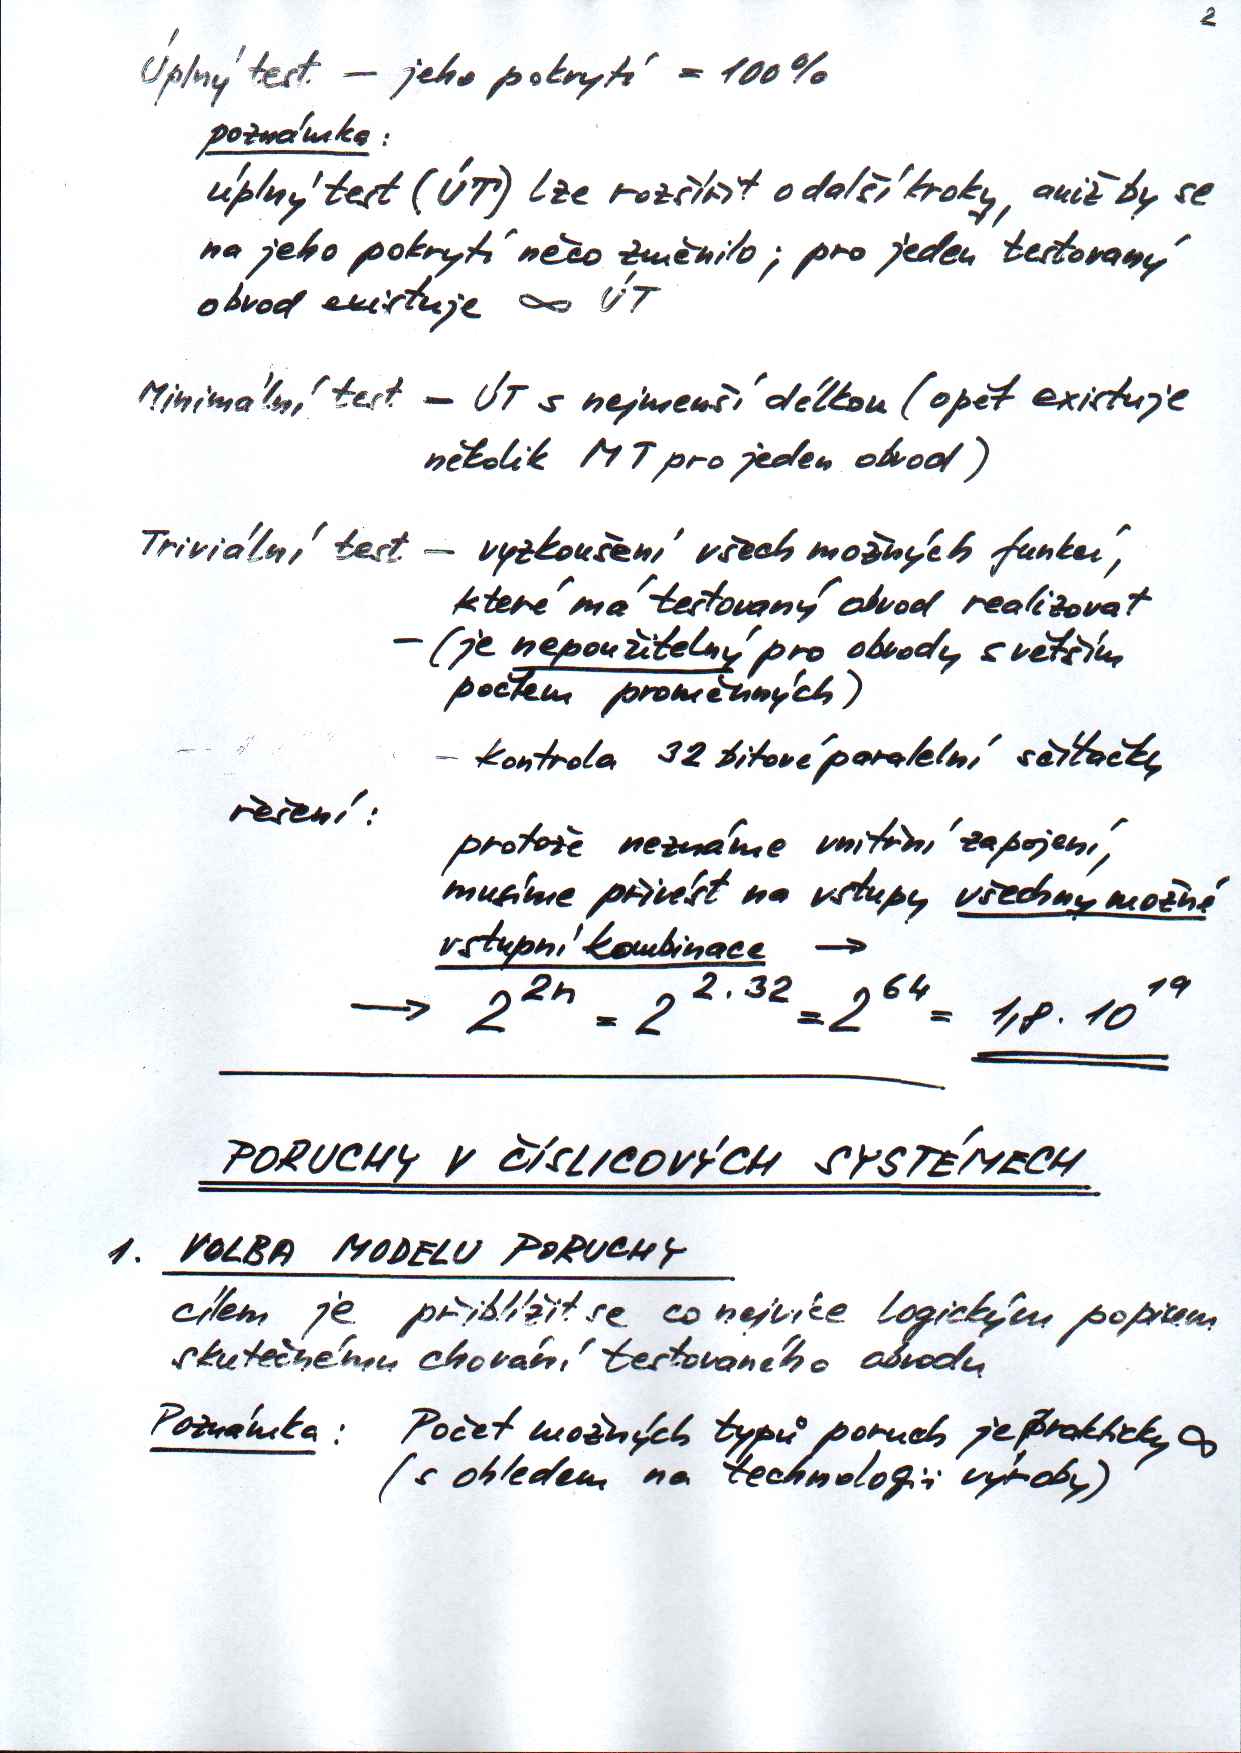 2
Úplný test – jeho pokrytí = 100%
poznámka:
úplný test (ÚT) lze rozšířit o další kroky, aniž by se
na jeho pokrytí něco změnilo; pro jeden testovaný
obvod existuje ∞ ÚT
Minimální test – ÚT s nejmenší délkou (opět existuje
několik MT pro jeden obvod)
Triviální test – vyzkoušení všech možných funkcí,
které má testovaný obvod realizovat
– (je nepoužitelný pro obvody s větším
počtem proměnných)
– kontrola 32 bitové paralelní sčítačky
řešení:
protože neznáme vnitřní zapojení,
musíme přivést na vstupy všechny možné
vstupní kombinace →
→ 2^2n = 2^2.32 = 2^64 = 1,8 . 10^19
PORUCHY V ČÍSLICOVÝCH SYSTÉMECH
1. VOLBA MODELU PORUCHY
cílem je přiblížit se co nejvíce logickým popisem
skutečnému chování testovaného obvodu
Poznámka: Počet možných typů poruch je prakticky ∞
(s ohledem na technologii výroby)